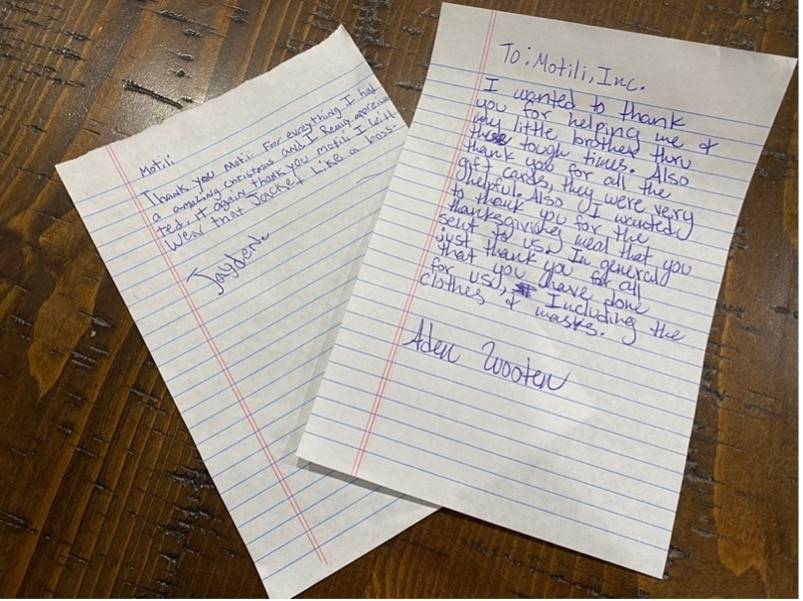 Motili
Thank you Motili For evrything I had
a amazing christmas and I Really apprecia
ted, it again thank you motili I will
Wear that Jacket Like a boss-
Jayden
To: Motili, Inc.
I wanted to thank
you for helping me &
my little brother thru
these tough times. Also
thank you for all the
gift cards, they were very
helpful. Also I wanted
to thank you for the
thanksgiving meal that you
sent to us. In general
just thank you for all
that you have done
for us, Including the
clothes & masks.
Aden Wooten